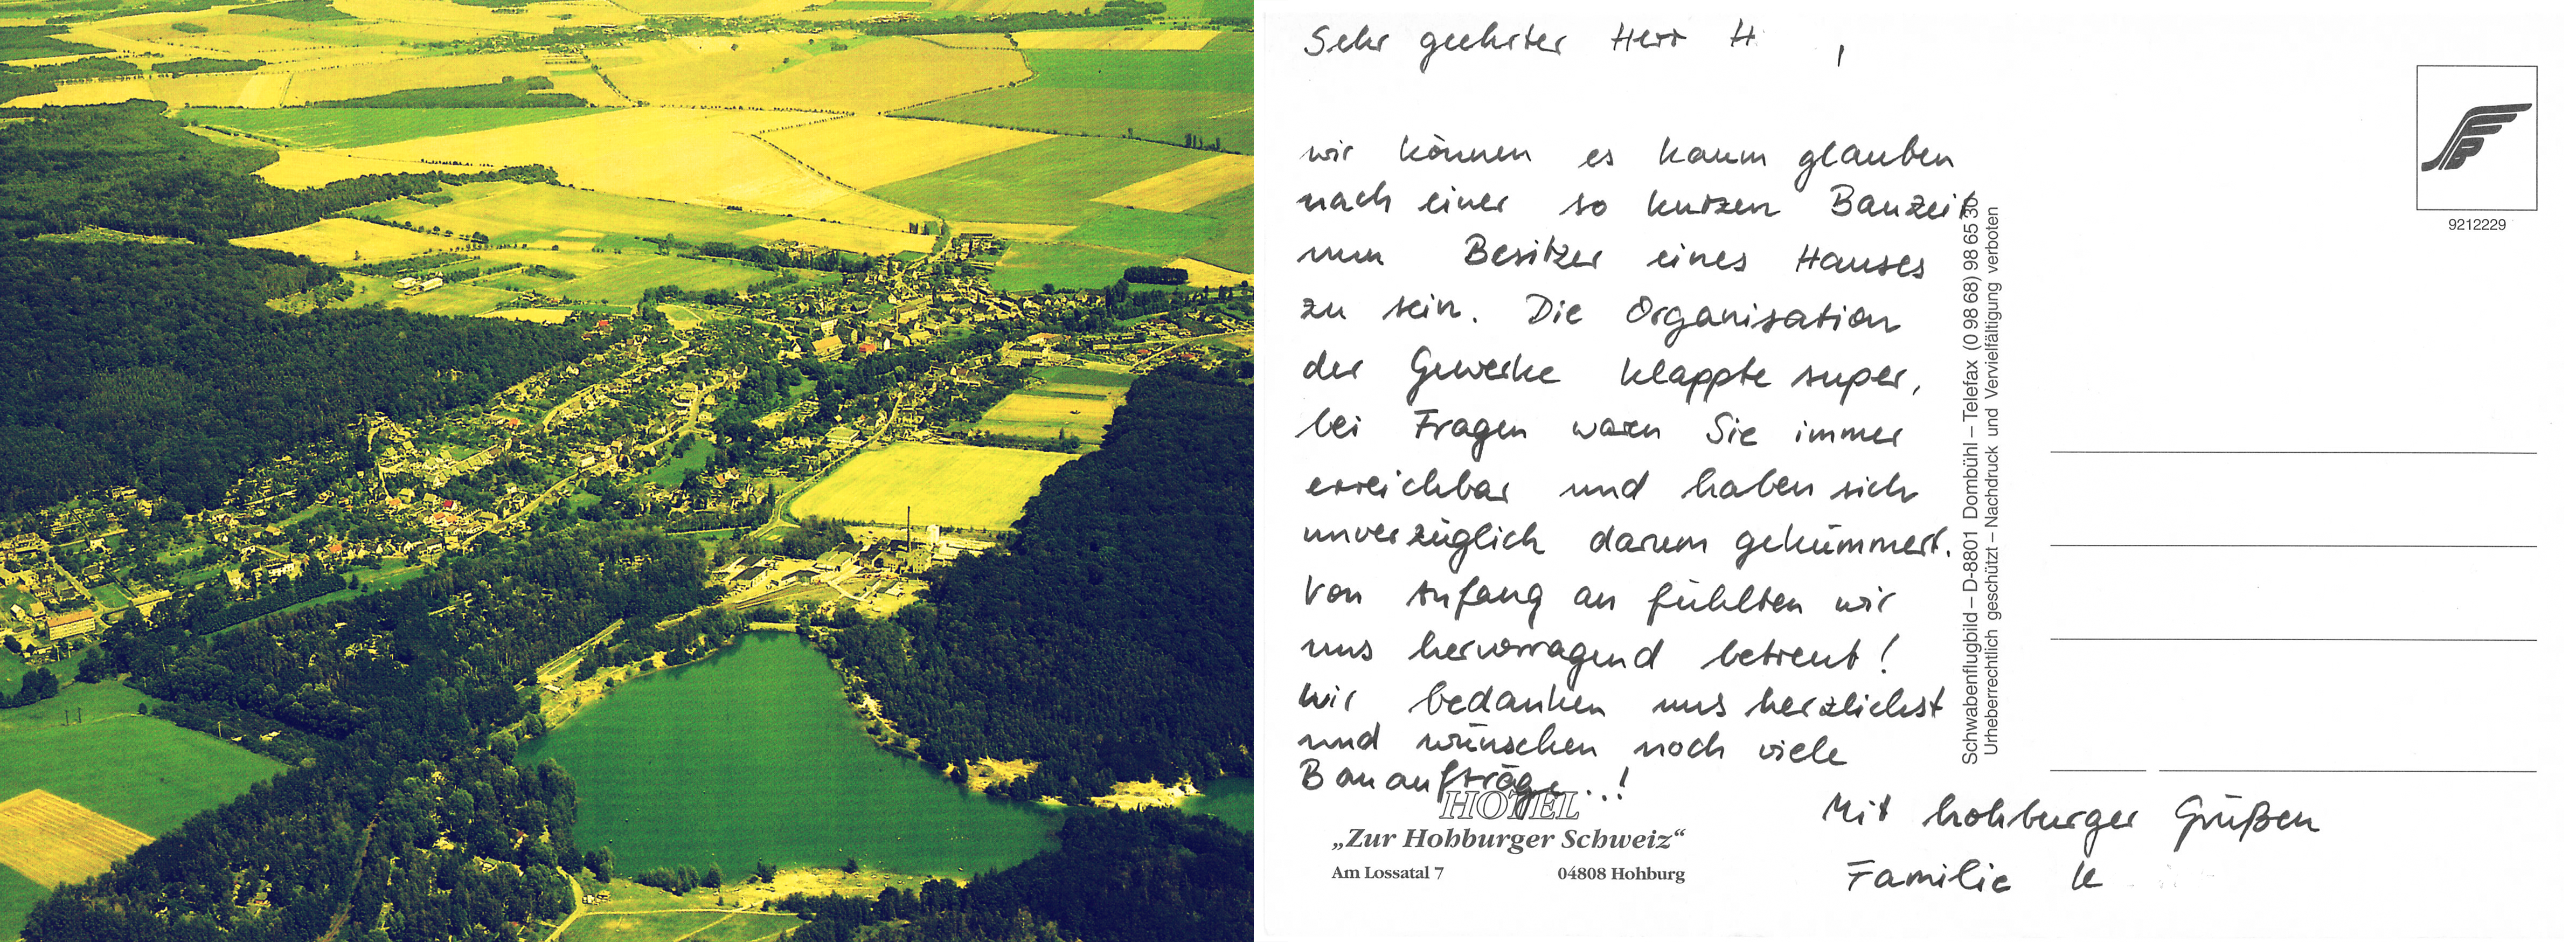 Sehr geehrter Herr H ,
wir können es kaum glauben
nach einer so kurzen Bauzeit
nun Besitzer eines Hauses
zu sein. Die Organisation
der Gewerke klappte super,
bei Fragen waren Sie immer
erreichbar und haben sich
unverzüglich darum gekümmert.
Von Anfang an fühlten wir
uns hervorragend betreut!
Wir bedanken uns herzlichst
und wünschen noch viele
Bauaufträge..!
HOTEL
„Zur Hohburger Schweiz“
Am Lossatal 7 04808 Hohburg
Mit hohburger Grüßen
Familie K
Schwabenflugbild – D-8801 Dombühl – Telefax (0 98 68) 98 65 30
Urheberrechtlich geschützt – Nachdruck und Vervielfältigung verboten
9212229